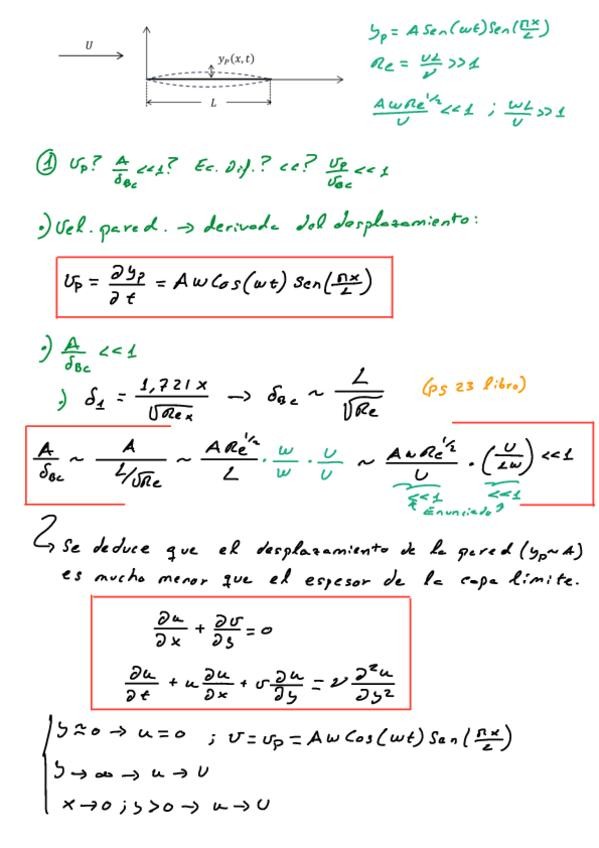 U
y_P(x,t)
L
y_p = A Sen(ωt) Sen(πx/L)
Re = UL/ν >>1
AωRe^1/2/U <<1 ; ωL/U >>1
① v_p? A/δ_BC <<1? Ec. Dif.? cc? v_p/v_BC <<1
•) Vel. pared. → derivada del desplazamiento:
v_p = ∂y_p/∂t = Aω Cos(ωt) Sen(πx/L)
•) A/δ_BC <<1
•) δ_1 = 1,721x/√Re_x → δ_BC ~ L/√Re (pg 23 libro)
A/δ_BC ~ A/(L/√Re) ~ ARe^1/2/L · ω/ω · U/U ~ AωRe^1/2/U · (U/Lω) <<1
<<1 <<1
Enunciado
Se deduce que el desplazamiento de la pared (y_p~A)
es mucho menor que el espesor de la capa límite.
∂u/∂x + ∂v/∂y = 0
∂u/∂t + u ∂u/∂x + v ∂u/∂y = ν ∂²u/∂y²
y≈0 → u=0 ; v=v_p = AωCos(ωt) Sen(πx/L)
y→∞ → u→U
x→0 ; y>0 → u→U